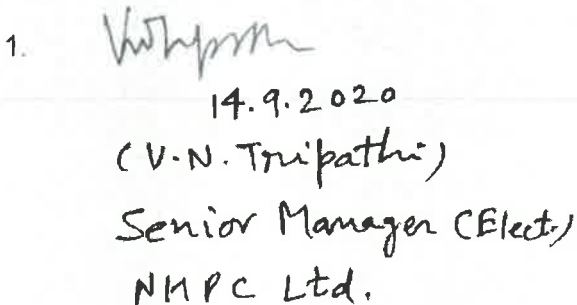 1.
14.9.2020
(V.N. Tripathi)
Senior Manager (Elect.)
NHPC Ltd.